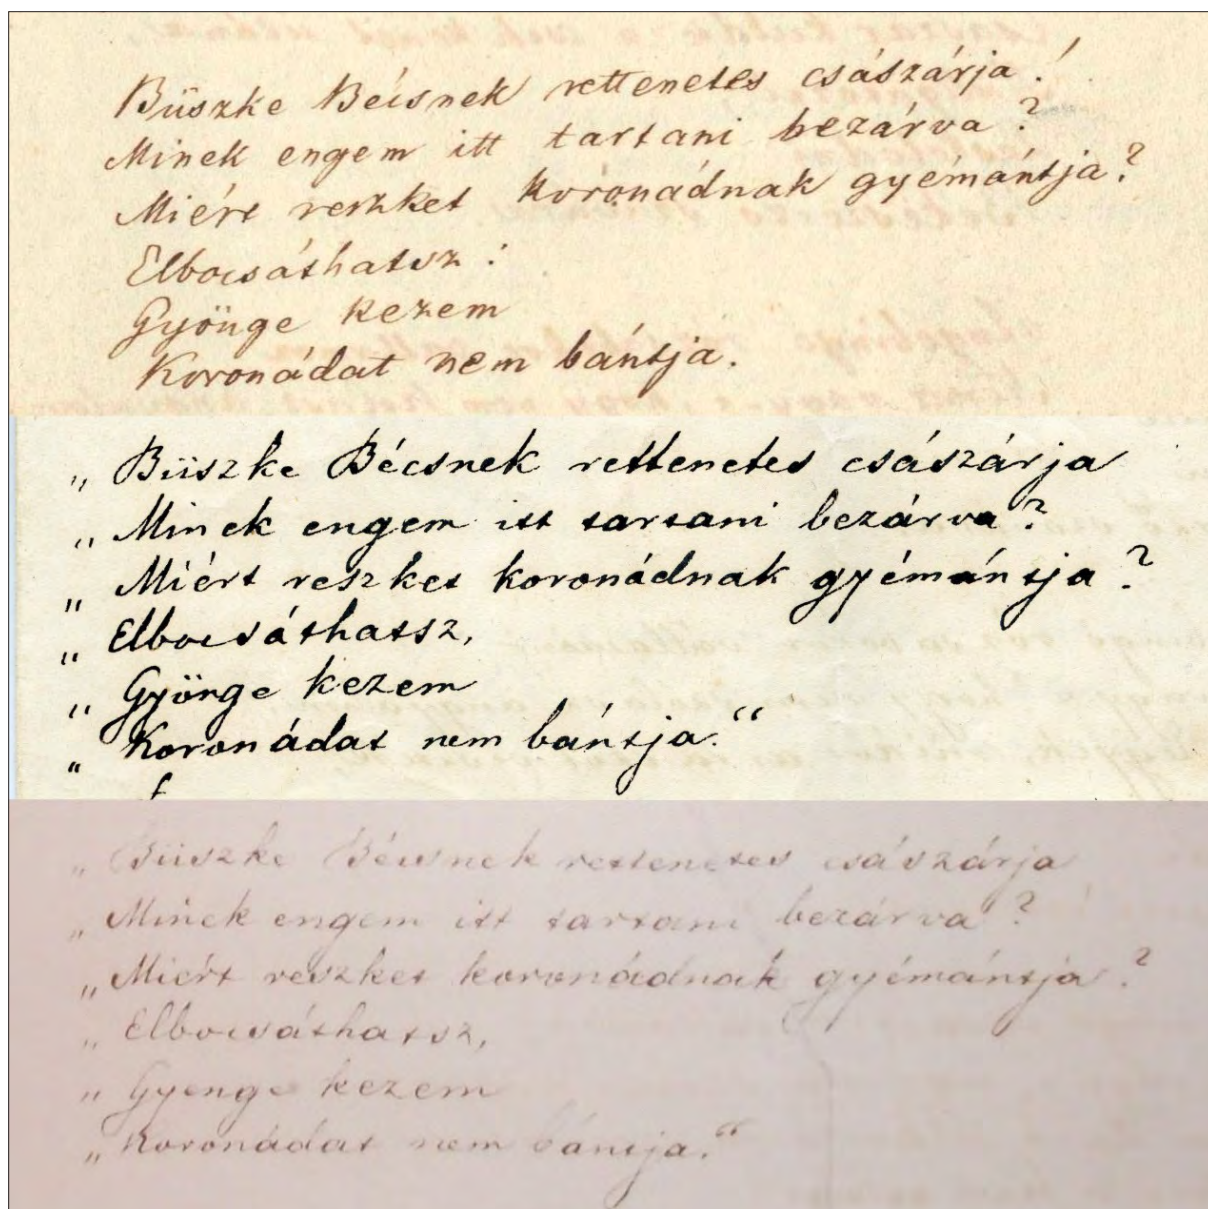 Büszke Bécsnek rettenetes császárja!
Minek engem itt tartani bezárva?
Miért reszket koronádnak gyémántja?
Elbocsáthatsz:
Gyönge kezem
Koronádat nem bántja.
„ Büszke Bécsnek rettenetes császárja
„ Minek engem itt tartani bezárva?
„ Miért reszket koronádnak gyémántja?
„ Elbocsáthatsz,
„ Gyönge kezem
„ Koronádat nem bántja.“
„ Büszke Bécsnek rettenetes császárja
„ Minek engem itt tartani bezárva?
„ Miért reszket koronádnak gyémántja?
„ Elbocsáthatsz,
„ Gyenge kezem
„ Koronádat nem bántja.“